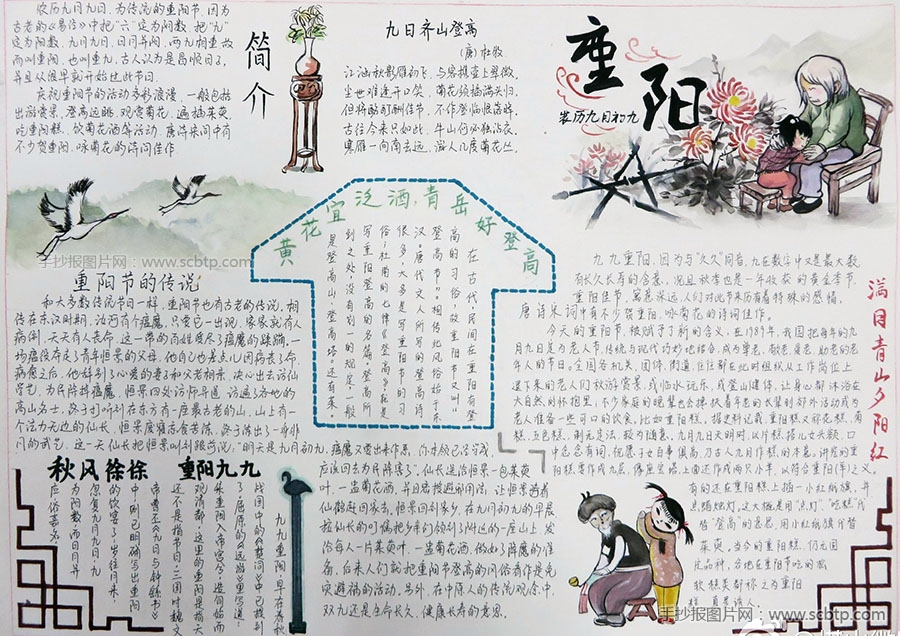 农历九月九日,为传说的重阳节。因为
古老的《易经》中把"六"定为阴数,把"九"
定为阳数,九月九日,日月并阳,两九相重,故
而叫重阳,也叫重九,古人认为是
并且从很早就开始过此节日。
庆祝重阳节的活动多彩浪漫,一般包括
出游赏景、登高远眺、观赏菊花、遍插茱萸、
吃重阳糕、饮菊花酒等活动。唐诗宋词中有
不少贺重阳,咏菊花的诗词佳作。
简介
九日齐山登高
(唐)杜牧
江涵秋影雁初飞,与客携壶上翠微。
尘世难逢开口笑,菊花须插满头归。
但将酩酊酬佳节,不作登临恨落晖。
古往今来只如此,牛山何必独沾衣。
重阳
农历九月初九
手抄报图片网:www.scbtp.com
黄花宜泛酒,青岳好登高
在古代,民间在重阳有登
高的习俗,故重阳节又叫"
登高节"。相传此风俗始于东
汉。唐代文人所写的登高诗
很多,大多是写重阳节的习
俗;杜甫的七律《登高》,就是
写重阳登高的名篇。登高所
到之处,没有划一的规定,一般
是登高山、登高塔。还有
重阳节的传说
和大多数传统节日一样,重阳节也有古老的传说。相
传在东汉时期,汝河有个瘟魔,只要它一出现,家家就有人
病倒,天天有人丧命,这一带的百姓受尽了瘟魔的蹂躏。一
场瘟疫夺走了青年恒景的父母,他自己也差点儿因病丧了命。
病愈之后,他辞别了心爱的妻子和父老乡亲,决心出去访仙
学艺,为民除掉瘟魔。恒景四处访师寻道,访遍各地的
名山高士,终于打听到在东方有一座最古老的山,山上有一
个法力无边的仙长,
终于练出了一身非
凡的武艺。这一天仙长把恒景叫到跟前说:"明天是九月初九,瘟魔又要出来作恶,你本领已经学成,
应该回去为民除害了。"仙长送给恒景一包茱萸
叶,一盅菊花酒,并且密授避邪用法,让恒景骑着
仙鹤赶回家去。恒景回到家乡,在九月初九的早晨,
按仙长的叮嘱把乡亲们领到了附近的一座山上,发
给每人一片茱萸叶,一盅菊花酒,做好了降魔的准
备。后来人们就把重阳节登高的风俗看作是免
灾避祸的活动。另外,在中原人的传统观念中,
双九还是生命长久、健康长寿的意思。
九九重阳,因为与"久久"同音,九在数字中又是最大数,
有长久长寿的含意,况且秋季也是一年收获的黄金季节,
重阳佳节,寓意深远,人们对此节历来有着特殊的感情,
唐诗宋词中有不少贺重阳,咏菊花的诗词佳作。
今天的重阳节,被赋予了新的含义,在1989年,我国把每年的九
月九日定为老人节,传统与现代巧妙地结合,成为尊老、敬老、爱老、助老的老
年人的节日。全国各机关、团体、街道,往往都在此时组织从工作岗位上
退下来的老人们秋游赏景,或临水玩乐,或登山健体,让身心都沐浴在
大自然的怀抱里;不少家庭的晚辈也会搀扶着年老的长辈到郊外活动或为
老人准备一些可口的饮食,比如重阳糕。据史料记载,重阳糕又称花糕、菊
糕、五色糕,制无定法,较为随意。九月九日天明时,以片糕搭儿女头额,口
中念念有词,祝愿子女百事俱高,乃古人九月作糕的本意。讲究的重
阳糕要作成九层,像座宝塔,上面还作成两只小羊,以符合重阳(羊)之义。
有的还在重阳糕上插一小红纸旗,并
点蜡烛灯。这大概是用"点灯"、"吃糕"代
替"登高"的意思,用小红纸旗代替
茱萸。当今的重阳糕,仍无固
定品种,各地在重阳节吃的松
软糕类都称之为重阳
糕。
满目青山夕阳红
秋风徐徐 重阳九九
九九重阳,早在春秋
战国时的《楚词》中已提到
了。屈原的《远游》里写道:"
集重阳入帝宫兮,造旬始而
观清都"。这里的"重阳"是指天,
还不是指节日。三国时魏文
帝曹丕《九日与钟繇书》
中,则已明确写出重阳
的饮宴了:"岁往月来,
忽复九月九日。九
为阳数,而日月并
应,俗嘉其名
手抄报图片网:www.scbtp.com